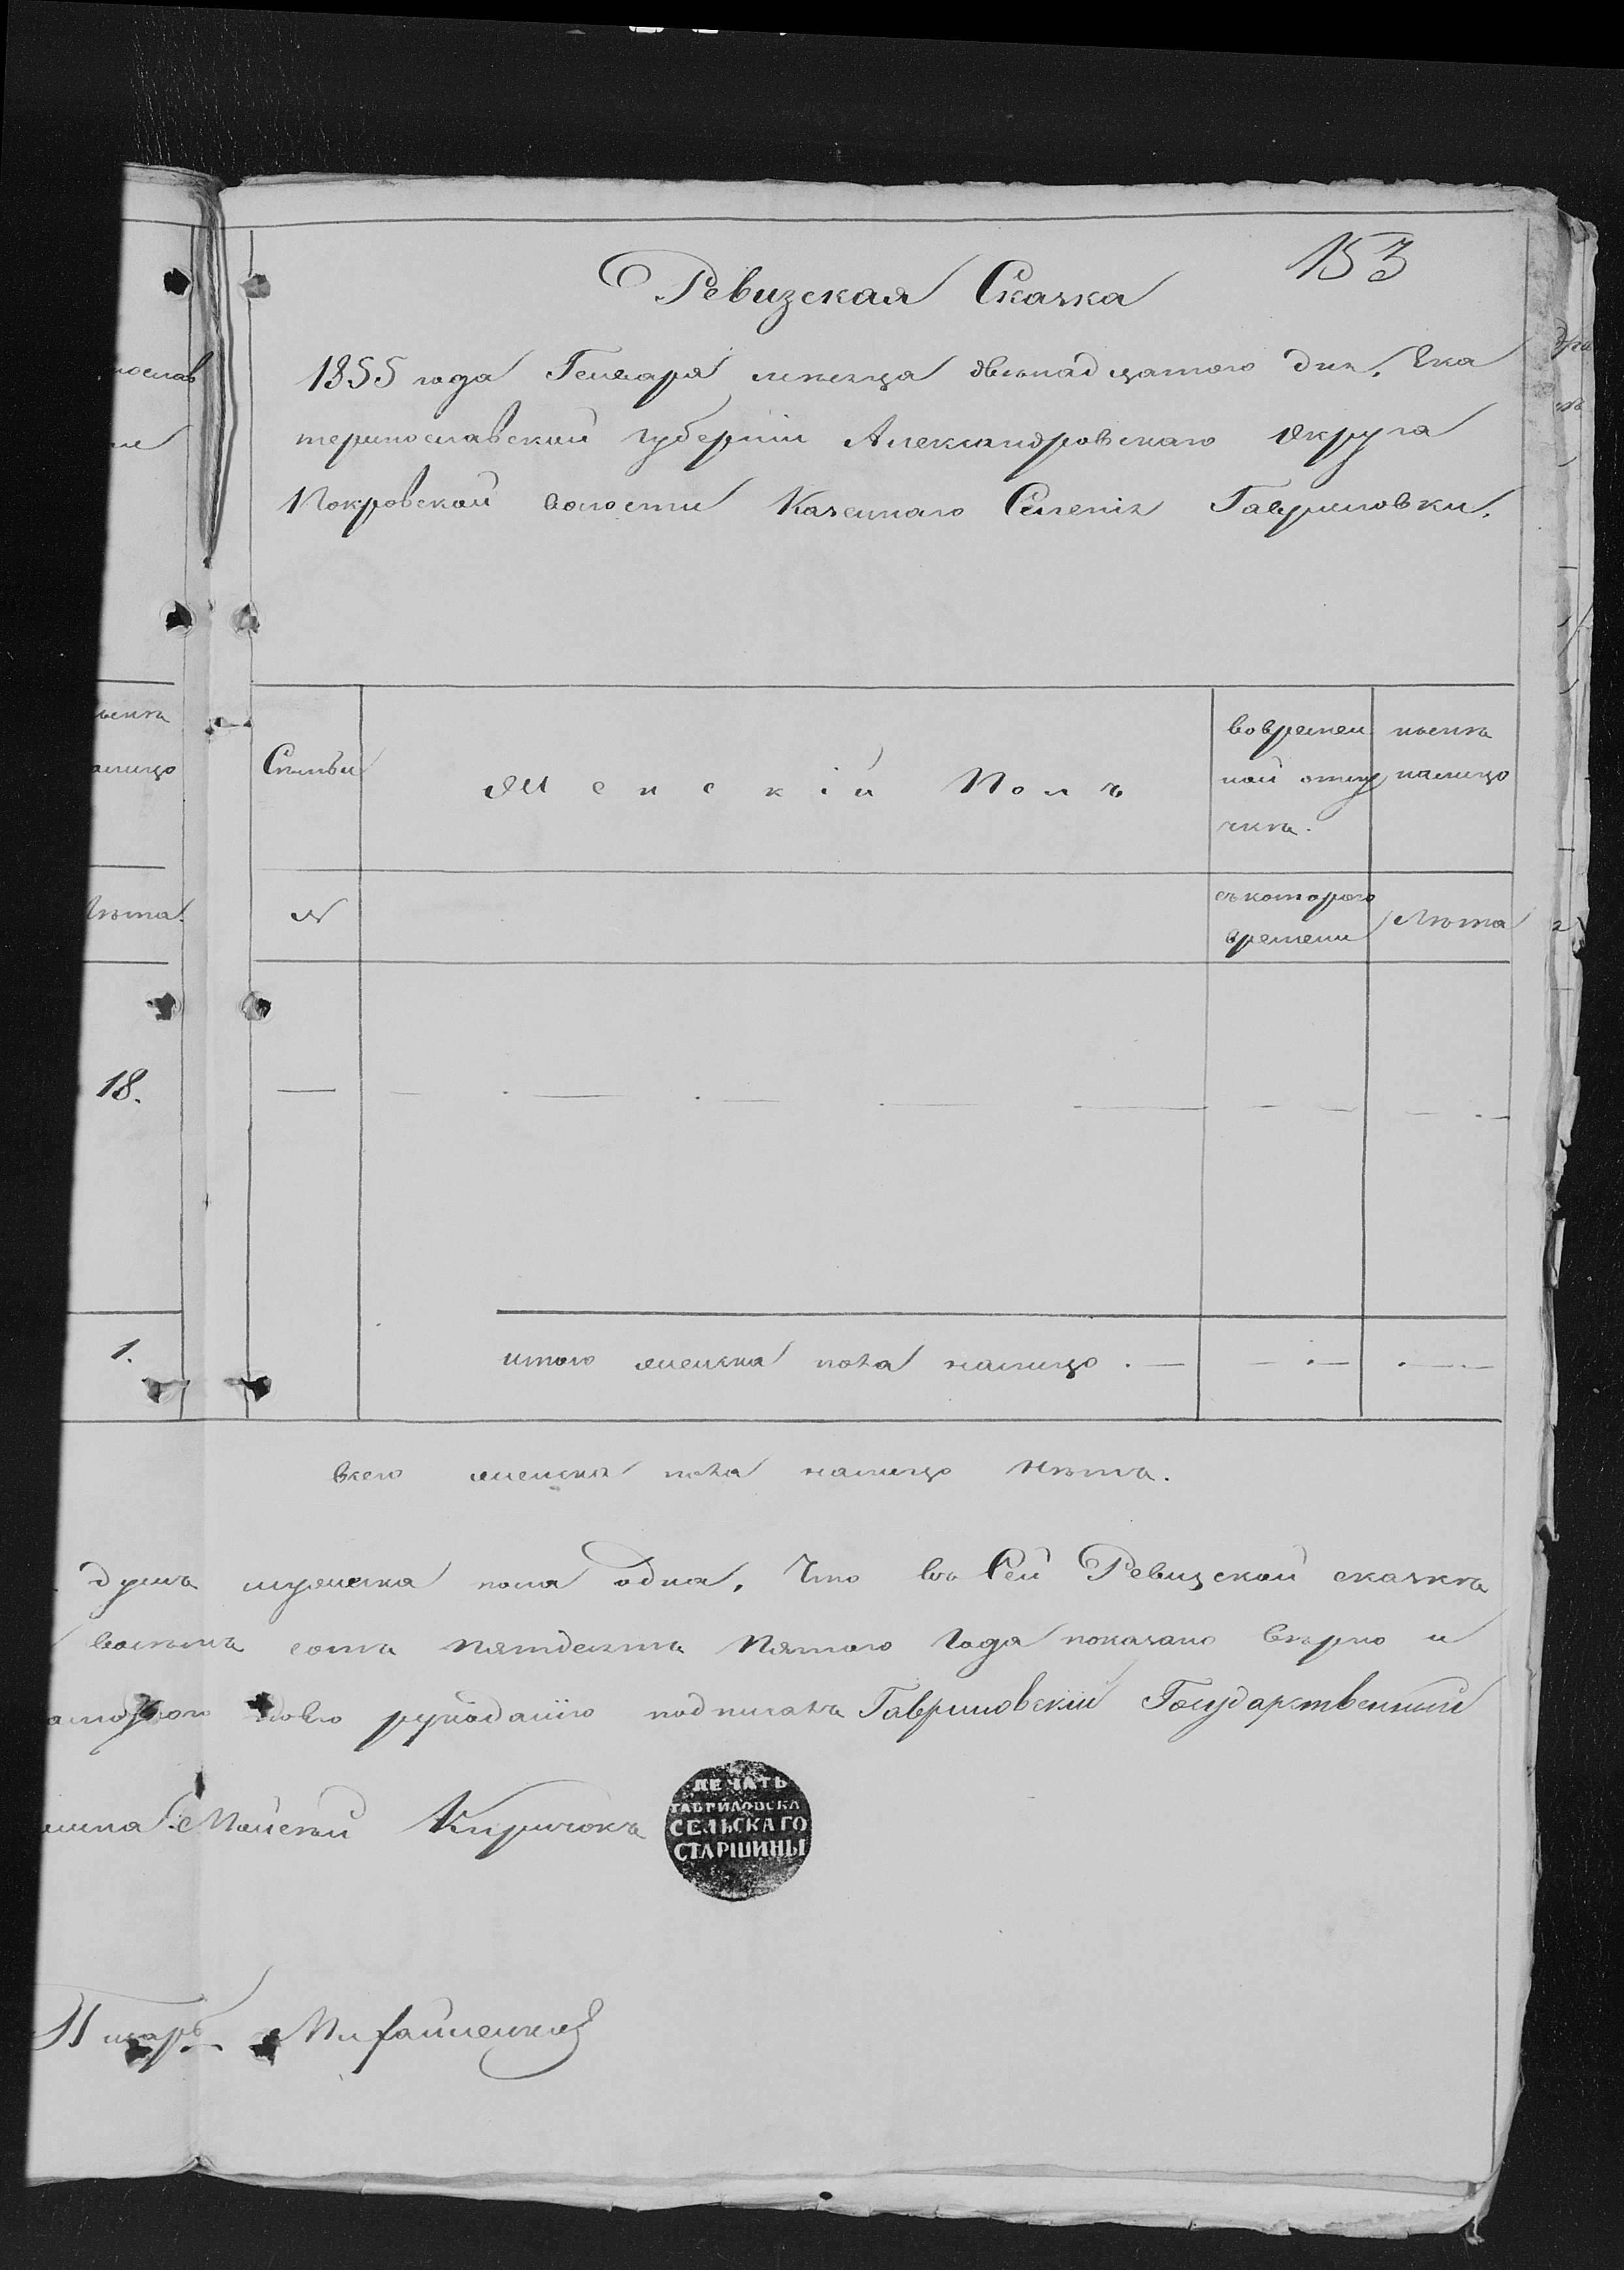 153
Ревизская Сказка
1855 года Генваря месяца двенадцатого дня. Ека
теринославской губернии Александровскаго Округа
Покровской волости Казеннаго Селения Гавриловки.
Семьи
Женскій Полъ
вовремен
ной отлу
чкѣ.
нынѣ
налицо
нынѣ
алицо
N
съ котораго
времени
Лѣта
Лѣта
18.
1.
итого женска пола налицо . —
всего женска пола налицо нѣтъ.
душъ мужеска пола одна. Что въ Сей Ревизской сказкѣ
восемь сотъ пятдесятъ пятого Года показано вѣрно и
подписалъ Гавриловскій Государственный
шина Моисей Киричокъ
ПЕЧАТЬ
ГАВРИЛОВСКА
СЕЛЬСКАГО
СТАРШИНЫ
Писарь Михайленко